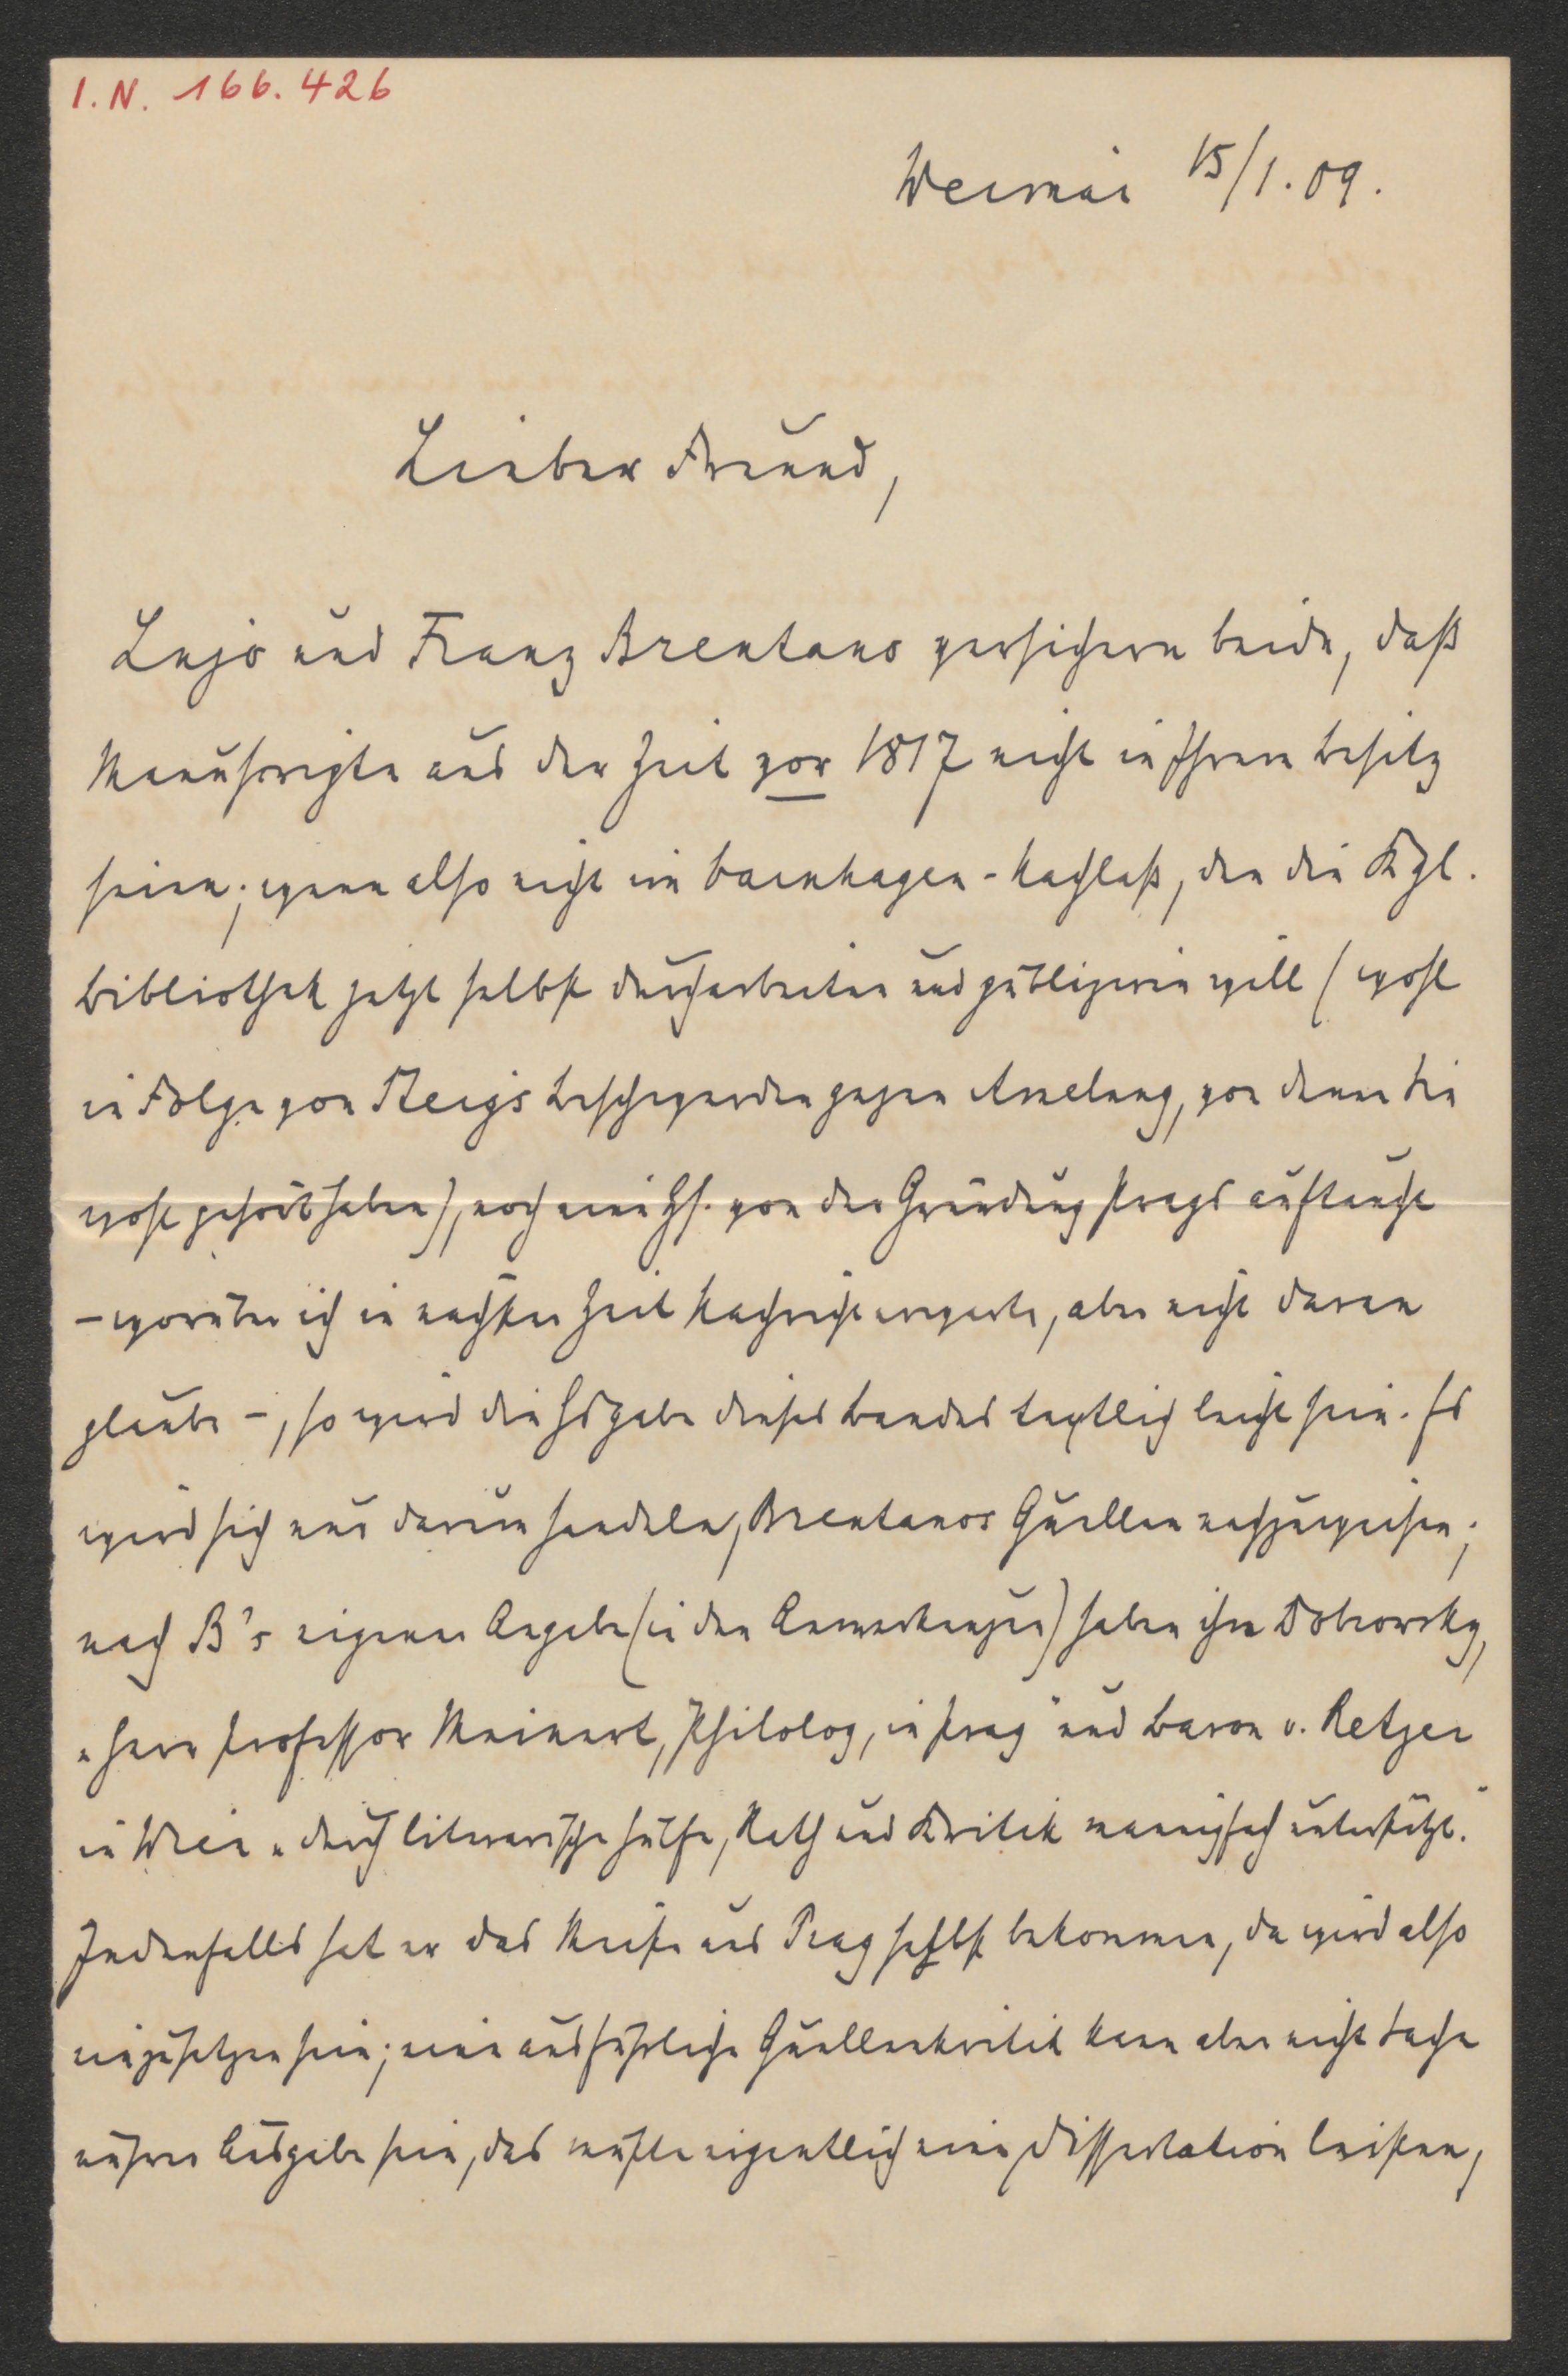 I. N. 166.426
Weimar 15/1. 09.
Lieber Freund,
Lujo und Franz Brentano versichern beide, daß
Manuscripte aus der Zeit vor 1817 nicht in Ihrem Besitz
seien; wenn also nicht im Varnhagen-Nachlaß, den die Kgl.
Bibliothek jetzt selbst durcharbeiten und publizieren will (wohl
in Folge von Steigs Beschwerden gegen Amelung, von denen Sie
wohl gehört haben), noch eine Hs. von der Gründung Prags auftaucht
– worüber ich in nächster Zeit Nachricht erwarte, aber nicht daran
glaube –, so wird die Hsgabe dieses Bandes textlich leicht sein. Es
wird sich nur darum handeln, Brentanos Quellen nachzuweisen;
nach B's eigener Angabe (in den Anmerkungen) haben ihn Dobrowsky,
„Herr Professor Meinert, Philolog, in Prag" und Baron v. Retzer
in Wien „durch literarische Hülfe, Rath und Kritik mannigfach unterstützt."
Jedenfalls hat er das Meiste aus Prag selbst bekommen, da wird also
einzusetzen sein; eine ausführliche Quellenkritik kann aber nicht Sache
unserer Ausgabe sein, das müßte eigentlich eine Dissertation leisten,